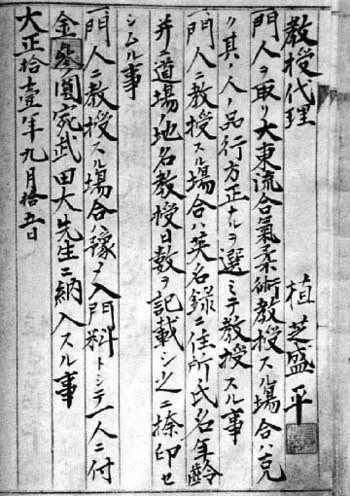 教授代理
植芝盛平
一、門人ヲ取リ大東流合氣柔術教授スル場合ハ克
ク其ノ人ノ品行方正ナルヲ選ミテ教授スル事
一、門人ニ教授スル場合ハ英名録ニ住所氏名年齢
并ニ道場ノ地名教授日数ヲ記載シ之ニ捺印セ
シムル事
一、門人ニ教授スル場合ハ豫メ入門料トシテ一人ニ付
金參圓武田大先生ニ納入スル事
大正拾壹年九月拾五日